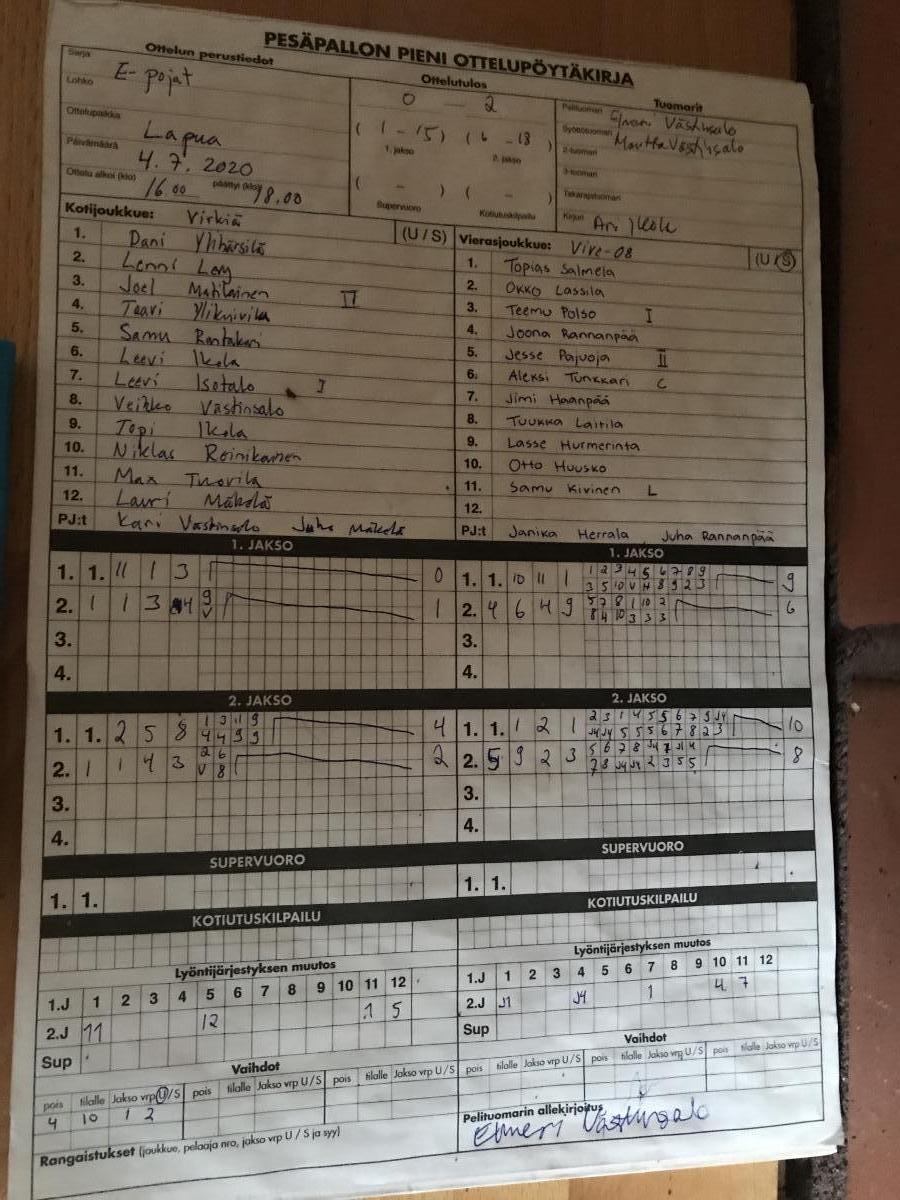 PESÄPALLON PIENI OTTELUPÖYTÄKIRJA
Ottelun perustiedot
Sarja E-pojat
Lohko
Ottelupaikka Lapua
Päivämäärä 4.7.2020
Ottelu alkoi (klo) 16.00 päättyi (klo) 18.00
Ottelutulos
0 - 2
(1 - 15) (6 - 18)
1. jakso 2. jakso
( - ) ( - )
Supervuoro Kotiutuskilpailu
Tuomarit
Pelituomari Elmeri Västinsalo
Syöttötuomari Västinsalo
2-tuomari
3-tuomari
Takarajatuomari
Kirjuri Ari Ikola
Kotijoukkue: Virkiä (U / S)
1. Dani Yliharsilä
2. Lenni
3. Joel Matilainen II
4. Taavi
5. Samu Rantakari
6. Leevi Ikola
7. Leevi Isotalo I
8. Veikko Västinsalo
9. Topi Ikola
10. Niklas Reinikainen
11. Max Tuovila
12. Lauri Mäkelä
PJ:t Kari Västinsalo Juha Mäkelä
Vierasjoukkue: Vire-08 (U / S)
1. Topias Salmela
2. Okko Lassila
3. Teemu Polso I
4. Joona Rannanpää
5. Jesse Pajuoja II
6. Aleksi Tunkkari C
7. Jimi Haanpää
8. Tuukka Laitila
9. Lasse Hurmerinta
10. Otto Huusko
11. Samu Kivinen L
12.
PJ:t Janika Herrala, Juha Rannanpää
1. JAKSO
1. 1. 11 1 3 0
2. 1 1 3 4 9 V 1
3.
4.
1. JAKSO
1. 1. 10 11 1 1 2 3 4 5 6 7 8 9 9
3 5 10 V 11 8 9 2 3
2. 4 6 4 9 5 7 8 1 10 2 6
8 4 10 3 3 3
3.
4.
2. JAKSO
1. 1. 2 5 8 1 3 11 9 4
4 4 9 9
2. 1 1 4 3 2 6 2
V 8
3.
4.
2. JAKSO
1. 1. 1 2 1 2 3 1 4 5 5 6 7 9 J4 10
J4 J4 5 5 5 6 7 8 2 3
2. 5 9 2 3 5 6 7 8 8
7 8 J4 J4 2 3 5 5
3.
4.
SUPERVUORO
1. 1.
SUPERVUORO
1. 1.
KOTIUTUSKILPAILU
KOTIUTUSKILPAILU
Lyöntijärjestyksen muutos
1.J 1 2 3 4 5 6 7 8 9 10 11 12
2.J 11 12 1 5
Sup
Lyöntijärjestyksen muutos
1.J 1 2 3 4 5 6 7 8 9 10 11 12
2.J J1 J4 1 4 7
Sup
Vaihdot
pois tilalle Jakso vrp U/S pois tilalle Jakso vrp U/S pois tilalle Jakso vrp U/S
4 10 1 2
Vaihdot
pois tilalle Jakso vrp U/S pois tilalle Jakso vrp U/S pois tilalle Jakso vrp U/S
Rangaistukset (joukkue, pelaaja nro, jakso vrp U / S ja syy)
Pelituomarin allekirjoitus
Elmeri Västinsalo